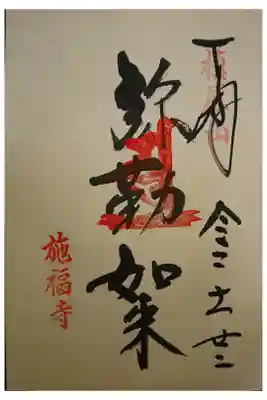 奉拝
令二 十一 廿二
弥勒如来
施福寺